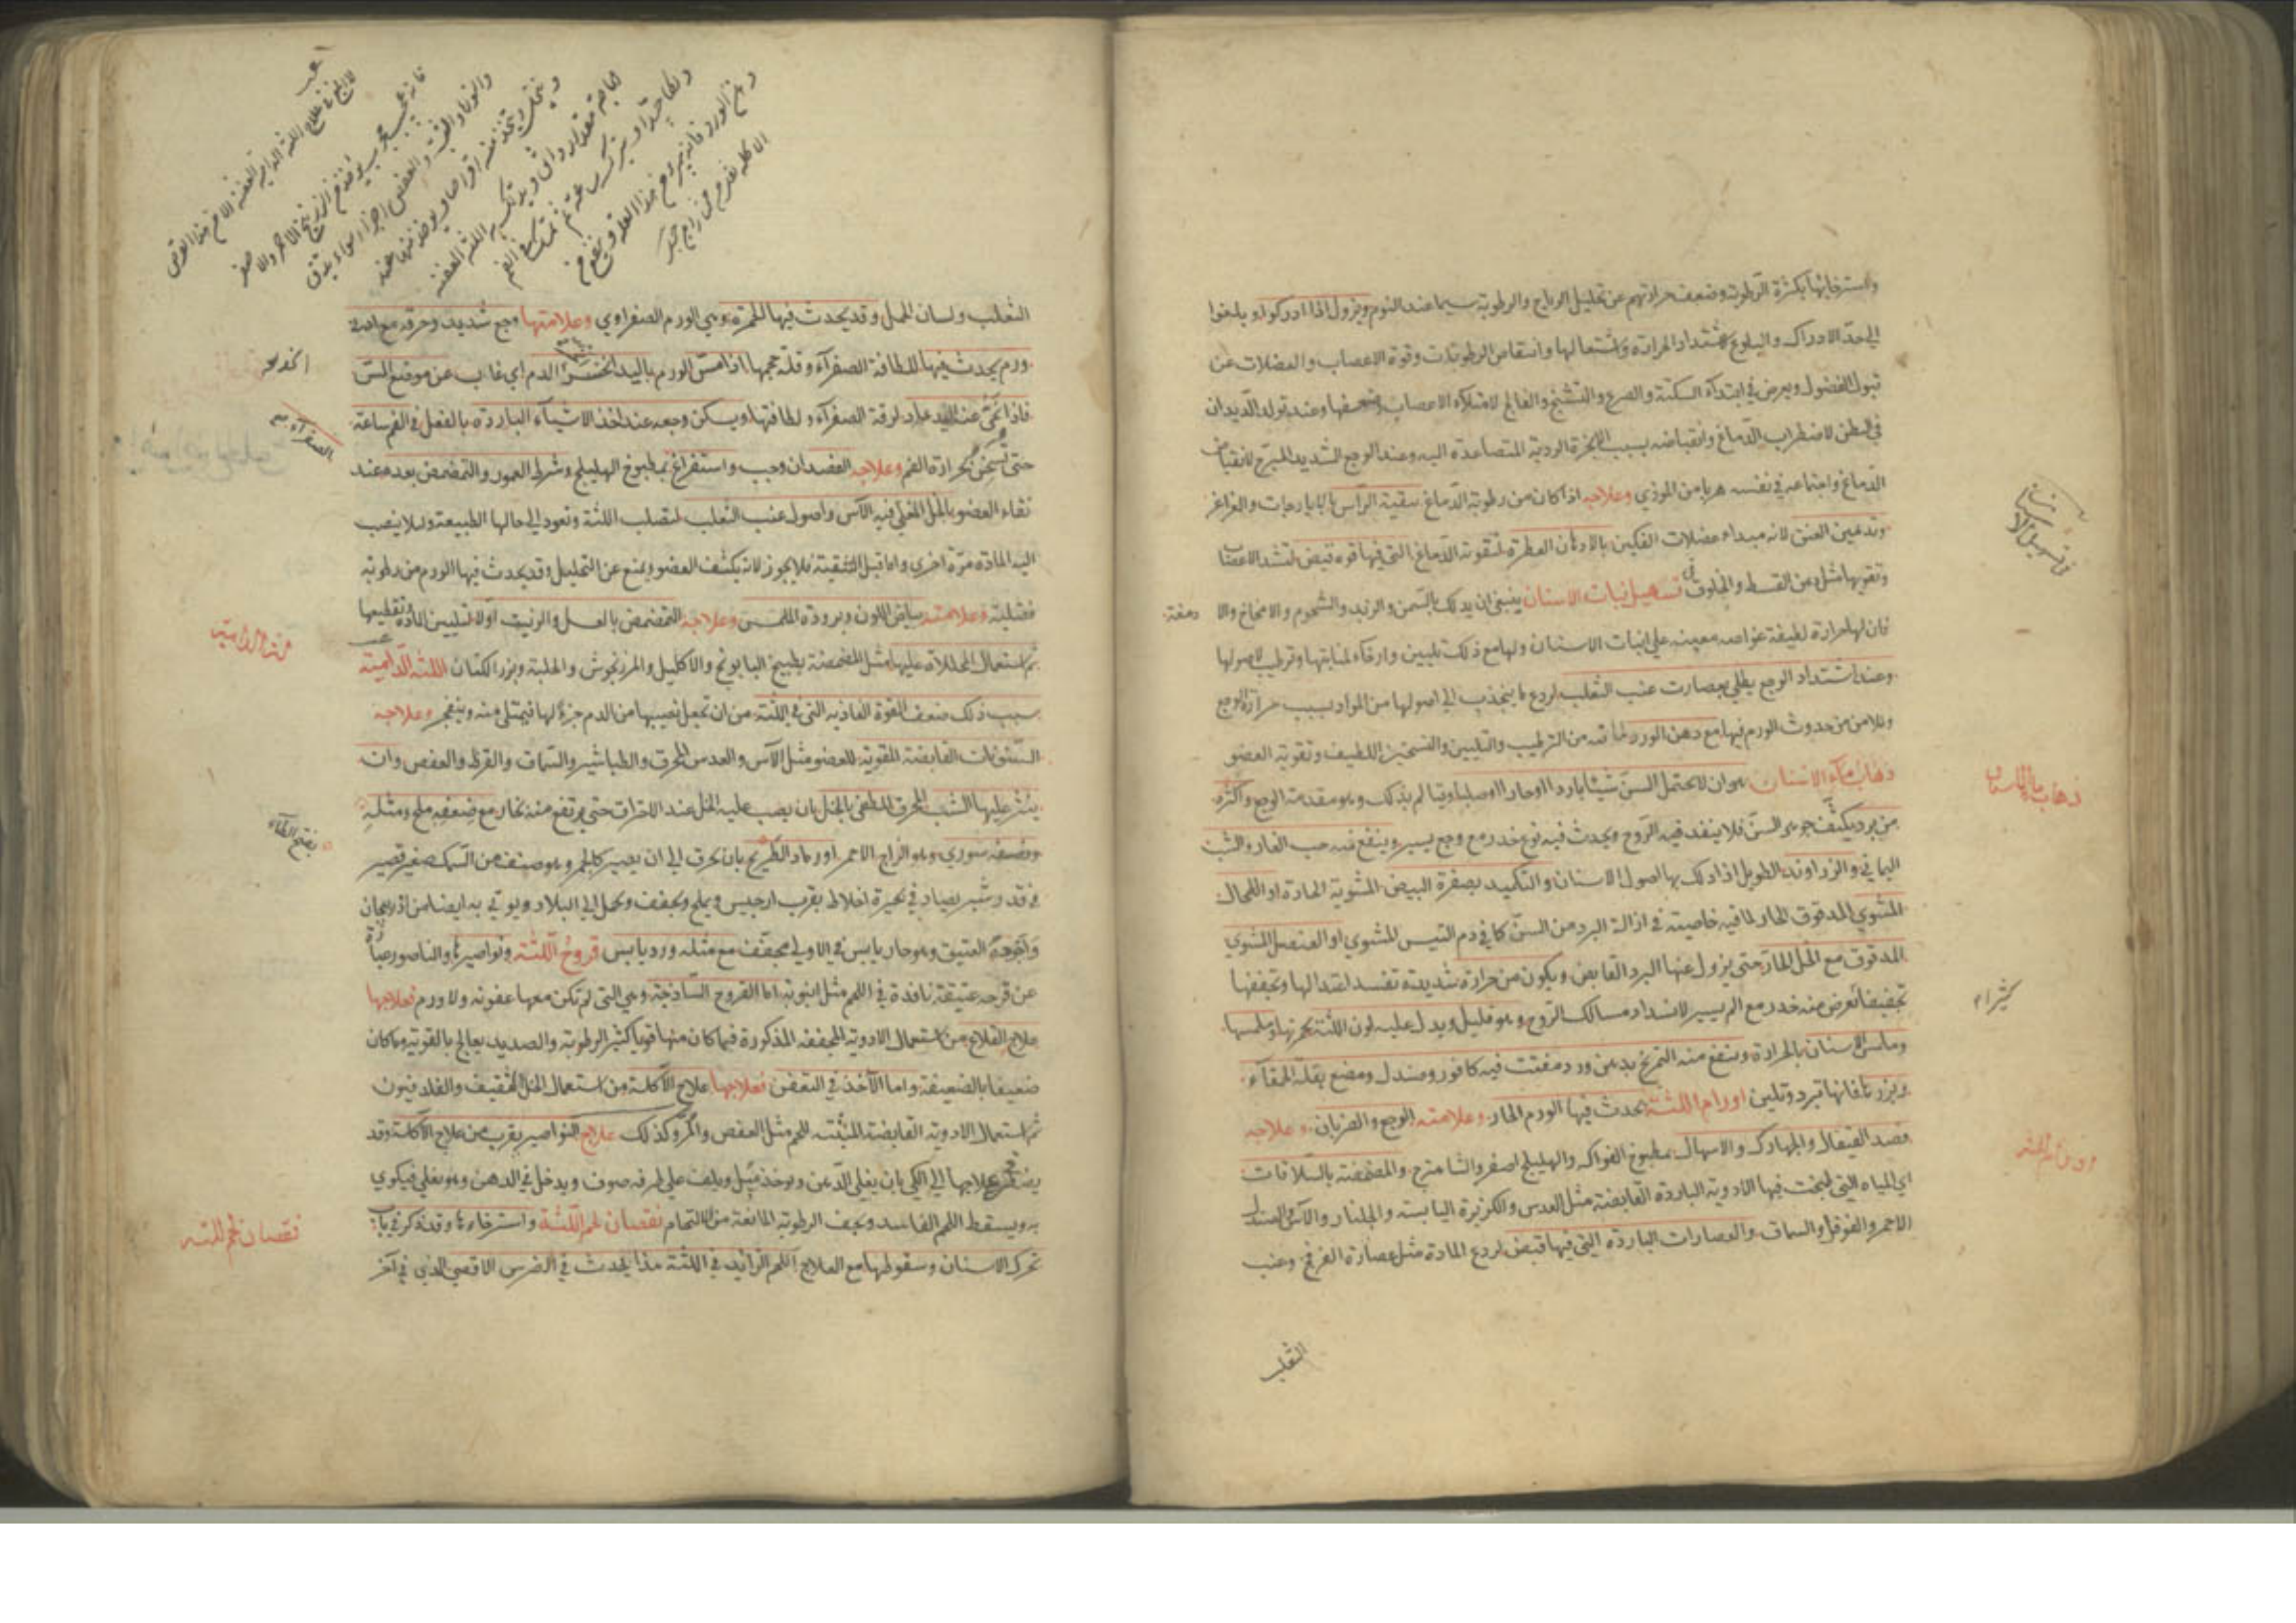 واسترخائها بكثرة الرطوبة وضعف حرارتهم عن تحليل الرياح والرطوبة سيما عند النوم ويزول اذا ادركوا وبلغوا
الى حد الادراك والبلوغ لاشتداد الحرارة واشتعالها وانتقاص الرطوبات وقوة الاعصاب والعضلات عن
قبول الفضول ويعرض في ابتداء السكتة والصرع والتشنج والفالج لامتلاء الاعصاب وضعفها وعند تولد الديدان
في البطن لاضطراب الدماغ وانقباضه بسبب الابخرة الردية المتصاعدة اليه وعند الوجع الشديد المبرح لانقباض
الدماغ واجتماعه في نفسه هربا من الموذي وعلاجه اذا كان من رطوبة الدماغ تنقية الرأس بالايارجات والغراغر
وتدهين العنق لانه مبداء عضلات الفكين بالادهان العطرة لتقوية الدماغ التي فيها قوة قبض لتشد الاعصاب
وتقويها مثل دهن القسط والخلوق في تسهيل نبات الاسنان ينبغي ان يدلك بالسمن والزبد والشحوم والامخاخ والا دمغة
فان لها حرارة لطيفة غواصه معينه على انبات الاسنان ولها مع ذلك تليين وارخاء لمنابتها وترطيب لاصولها
وعند اشتداد الوجع يطلى بعصارت عنب الثعلب لردع ما ينجذب الى اصولها من المواد بسبب حرارة الوجع
وللامن من حدوث الورم فيها مع دهن الورد لما فيه من الترطيب والتليين والتسخين اللطيف وتقوية العضو
ذهاب ماء الاسنان هو ان لا يحتمل السن شيئا باردا او حارا او صلبا وتيا لم بذلك وهو مقدمة الوجع واكثره
من برد يكثف جوهر السن فلا ينفذ فيه الروح ويحدث فيه نوع خدر مع وجع يسير وينفع منه حب الغار والشب
اليماني والزراوند الطويل اذا دلك بها اصول الاسنان والتكميد بصفرة البيض المشوية الحارة او اللحمال
المشوي المدقوق الحار لما فيه خاصيته في ازالة البرد من السن كما في دم التيس المشوي او العنصل المشوي
المدقوق مع الخل الحار حتى يزول عنها البرد القابض ويكون من حرارة شديدة تفسد اعتدالها وتجففها
تجفيفا تعرض منه خدر مع الم يسير لانسداد مسالك الروح وهو قليل ويدل عليه لون اللثة بحمرتها وملمسها
وملمس الاسنان بالحرارة وينفع منه التمريخ بدهن ورد مفتت فيه كافور وصندل ومضغ بقلة الحمقاء
وبزرها فانها تبرد وتلين اورام اللثة يحدث فيها الورم الحار وعلامته الوجع والضربان وعلاجه
فصد القيفال والجهارك والاسهال بمطبوخ الفواكه والهليلج اصفر والشاهترج والمضمضة بالسلاقات
اي المياه التي طبخت فيها الادوية الباردة القابضة مثل العدس والكزبرة اليابسة والجلنار والآس والصندل
الاحمر والفوفل والسماق والعصارات الباردة التي فيها قبض لردع المادة مثل عصارة الفرفخ وعنب
الثعلب
ذهاب ماء الاسنان
الثعلب ولسان الحمل وقد يحدث فيها الحمرة وهي الورم الصفراوي وعلامتها وجع شديد وحرقة مع ادنى
ورم يحدث فيها للطافة الصفراء وقلة حجمها اذا مس الورم باليد انخنس الدم اي غاب عن موقع المس
فاذا نحى عنه اليد عاد لرقة الصفراء ولطافتها ويسكن وجعه عند اخذ الاشياء الباردة بالفعل في الفم ساعة
حتى تسخن بحرارة الفم وعلاجه الفصد ان وجب واستفراغ بمطبوخ الهليلج وشرط العمور والتمضمض بعده عند
نقاء العضو بالخل المغلى فيه الآس واصول عنب الثعلب لتصلب اللثة وتعود الى حالها الطبيعة ولئلا ينصب
اليه المادة مرة اخرى واما قبل التنقية فلا يجوز لانه يكثف العضو ويمنع عن التحليل وقد يحدث فيها الورم من رطوبة
فضلية وعلامته بياض اللون وبرودة الملمس وعلاجه التمضمض بالعسل والزيت اولا لتليين المادة وتقطيعها
ثم استعمال المحللات عليها مثل المضمضة بطبيخ البابونج والاكليل والمرزنجوش والحلبة وبزر الكتان اللثة الدامية
سبب ذلك ضعف القوة الغاذية التي في اللثة من ان تجعل نصيبها من الدم جزء لها فيمتلى منه وينفجر وعلاجه
السنونات القابضة المقوية للعضو مثل الآس والعدس المحرق والطباشير والسماق والقرظ والعفص وان
ينثر عليها الشب المحرق المطفى بالخل بان يصب عليه الخل عند الاحراق حتى يرتفع منه بخار مع ضعفه ملح ومثله
ونصفه سوري وهو الزاج الاحمر او رماد الطريخ بان يحرق الى ان يصير كالجمر وهو صنف من السمك صغير قصير
في قدر شبر يصاد في بحيرة اخلاط بقرب ارجيس ويملح ويجفف ويحمل الى البلاد ويوتي به ايضا من اذربيجان
واجوده العتيق وهو حار يابس في الاولى مجفف مع مثله ورد يابس قروح اللثة ونواصيرها والناصور عبارة
عن قرحه عتيقة نافذة في اللحم مثل انبوبة اما القروح الساذجة وهي التي لم تكن معها عفونة ولا ورم فعلاجها
علاج القلاع من استعمال الادوية المجففة المذكورة فيما كان منها قويا كثير الرطوبة والصديد يعالج بالقوية وما كان
ضعيفا بالضعيفة واما الآخذ في التعفن فعلاجها علاج الآكلة من استعمال الخل الثقيف والفلدفيون
ثم استعمال الادوية القابضة المنبتة للحم مثل العفص والمر وكذلك علاج النواصير يقرب من علاج الآكلة وقد
يضطر في علاجها الى الكي بان يغلى الدهن ويوخذ ميل ويلف على طرفه صوف ويدخل في الدهن وهو يغلي فيكوي
به ويسقط اللحم الفاسد ويجف الرطوبة المانعة من الالتحام نقصان لحم اللثة واسترخاءها وقد ذكر في باب
تحرك الاسنان وسقوطها مع العلاج اللحم الزائد في اللثة هذا يحدث في الضرس الاقصى الذي في آخر
اللثة الدامية
نقصان لحم اللثة